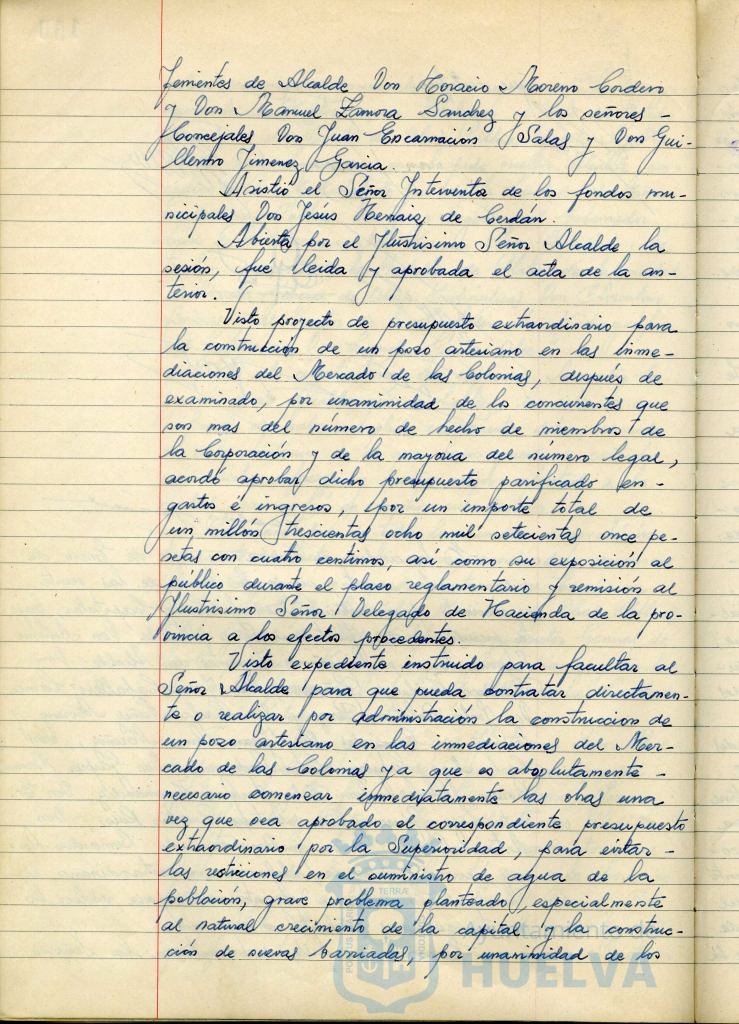 Tenientes de Alcalde Don Horacio Moreno Cordero
y Don Manuel Zamora Sanchez y los señores -
Concejales Don Juan Encarnación Salas y Don Gui-
llermo Jimenez Garcia.
Asistió el Señor Interventor de los fondos mu-
nicipales Don Jesús Hernaiz de Cerdán.
Abierta por el Ilustrisimo Señor Alcalde la
sesión, fué lleida y aprobada el acta de la an-
terior.
Visto proyecto de presupuesto extraordinario para
la construcción de un pozo artesiano en las inme-
diaciones del Mercado de las Colonias, después de
examinado, por unanimidad de los concurrentes que
son mas del número de hecho de miembros de
la Corporación y de la mayoria del número legal,
acordó aprobar dicho presupuesto parificado en-
gastos é ingresos, por un importe total de
un millón trescientas ocho mil setecientas once pe-
setas con cuatro centimos, así como su exposición al
público durante el plazo reglamentario y remisión al
Ilustrisimo Señor Delegado de Hacienda de la pro-
vincia a los efectos procedentes.
Visto expediente instruido para facultar al
Señor Alcalde para que pueda contratar directamen-
te o realizar por administración la construccion de
un pozo artesiano en las inmediaciones del Mer-
cado de las Colonias ya que es absolutamente -
necesario comenzar inmediatamente las obras una
vez que sea aprobado el correspondiente presupuesto
extraordinario por la Superioridad, para evitar -
las restriciones en el suministro de agua de la
población, grave problema planteado especialmente
al natural crecimiento de la capital y la construc-
ción de nuevas barriadas, por unanimidad de los
Ayuntamiento de
HUELVA